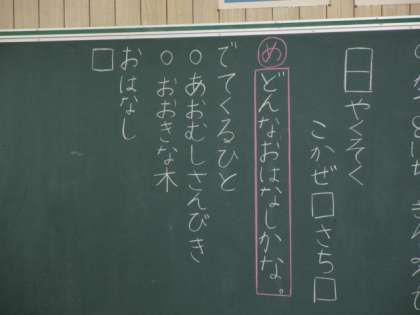 日やくそく
こかぜ□さち□
めどんなおはなしかな。
でてくるひと
○あおむしさんびき
○おおきな木
おはなし
□